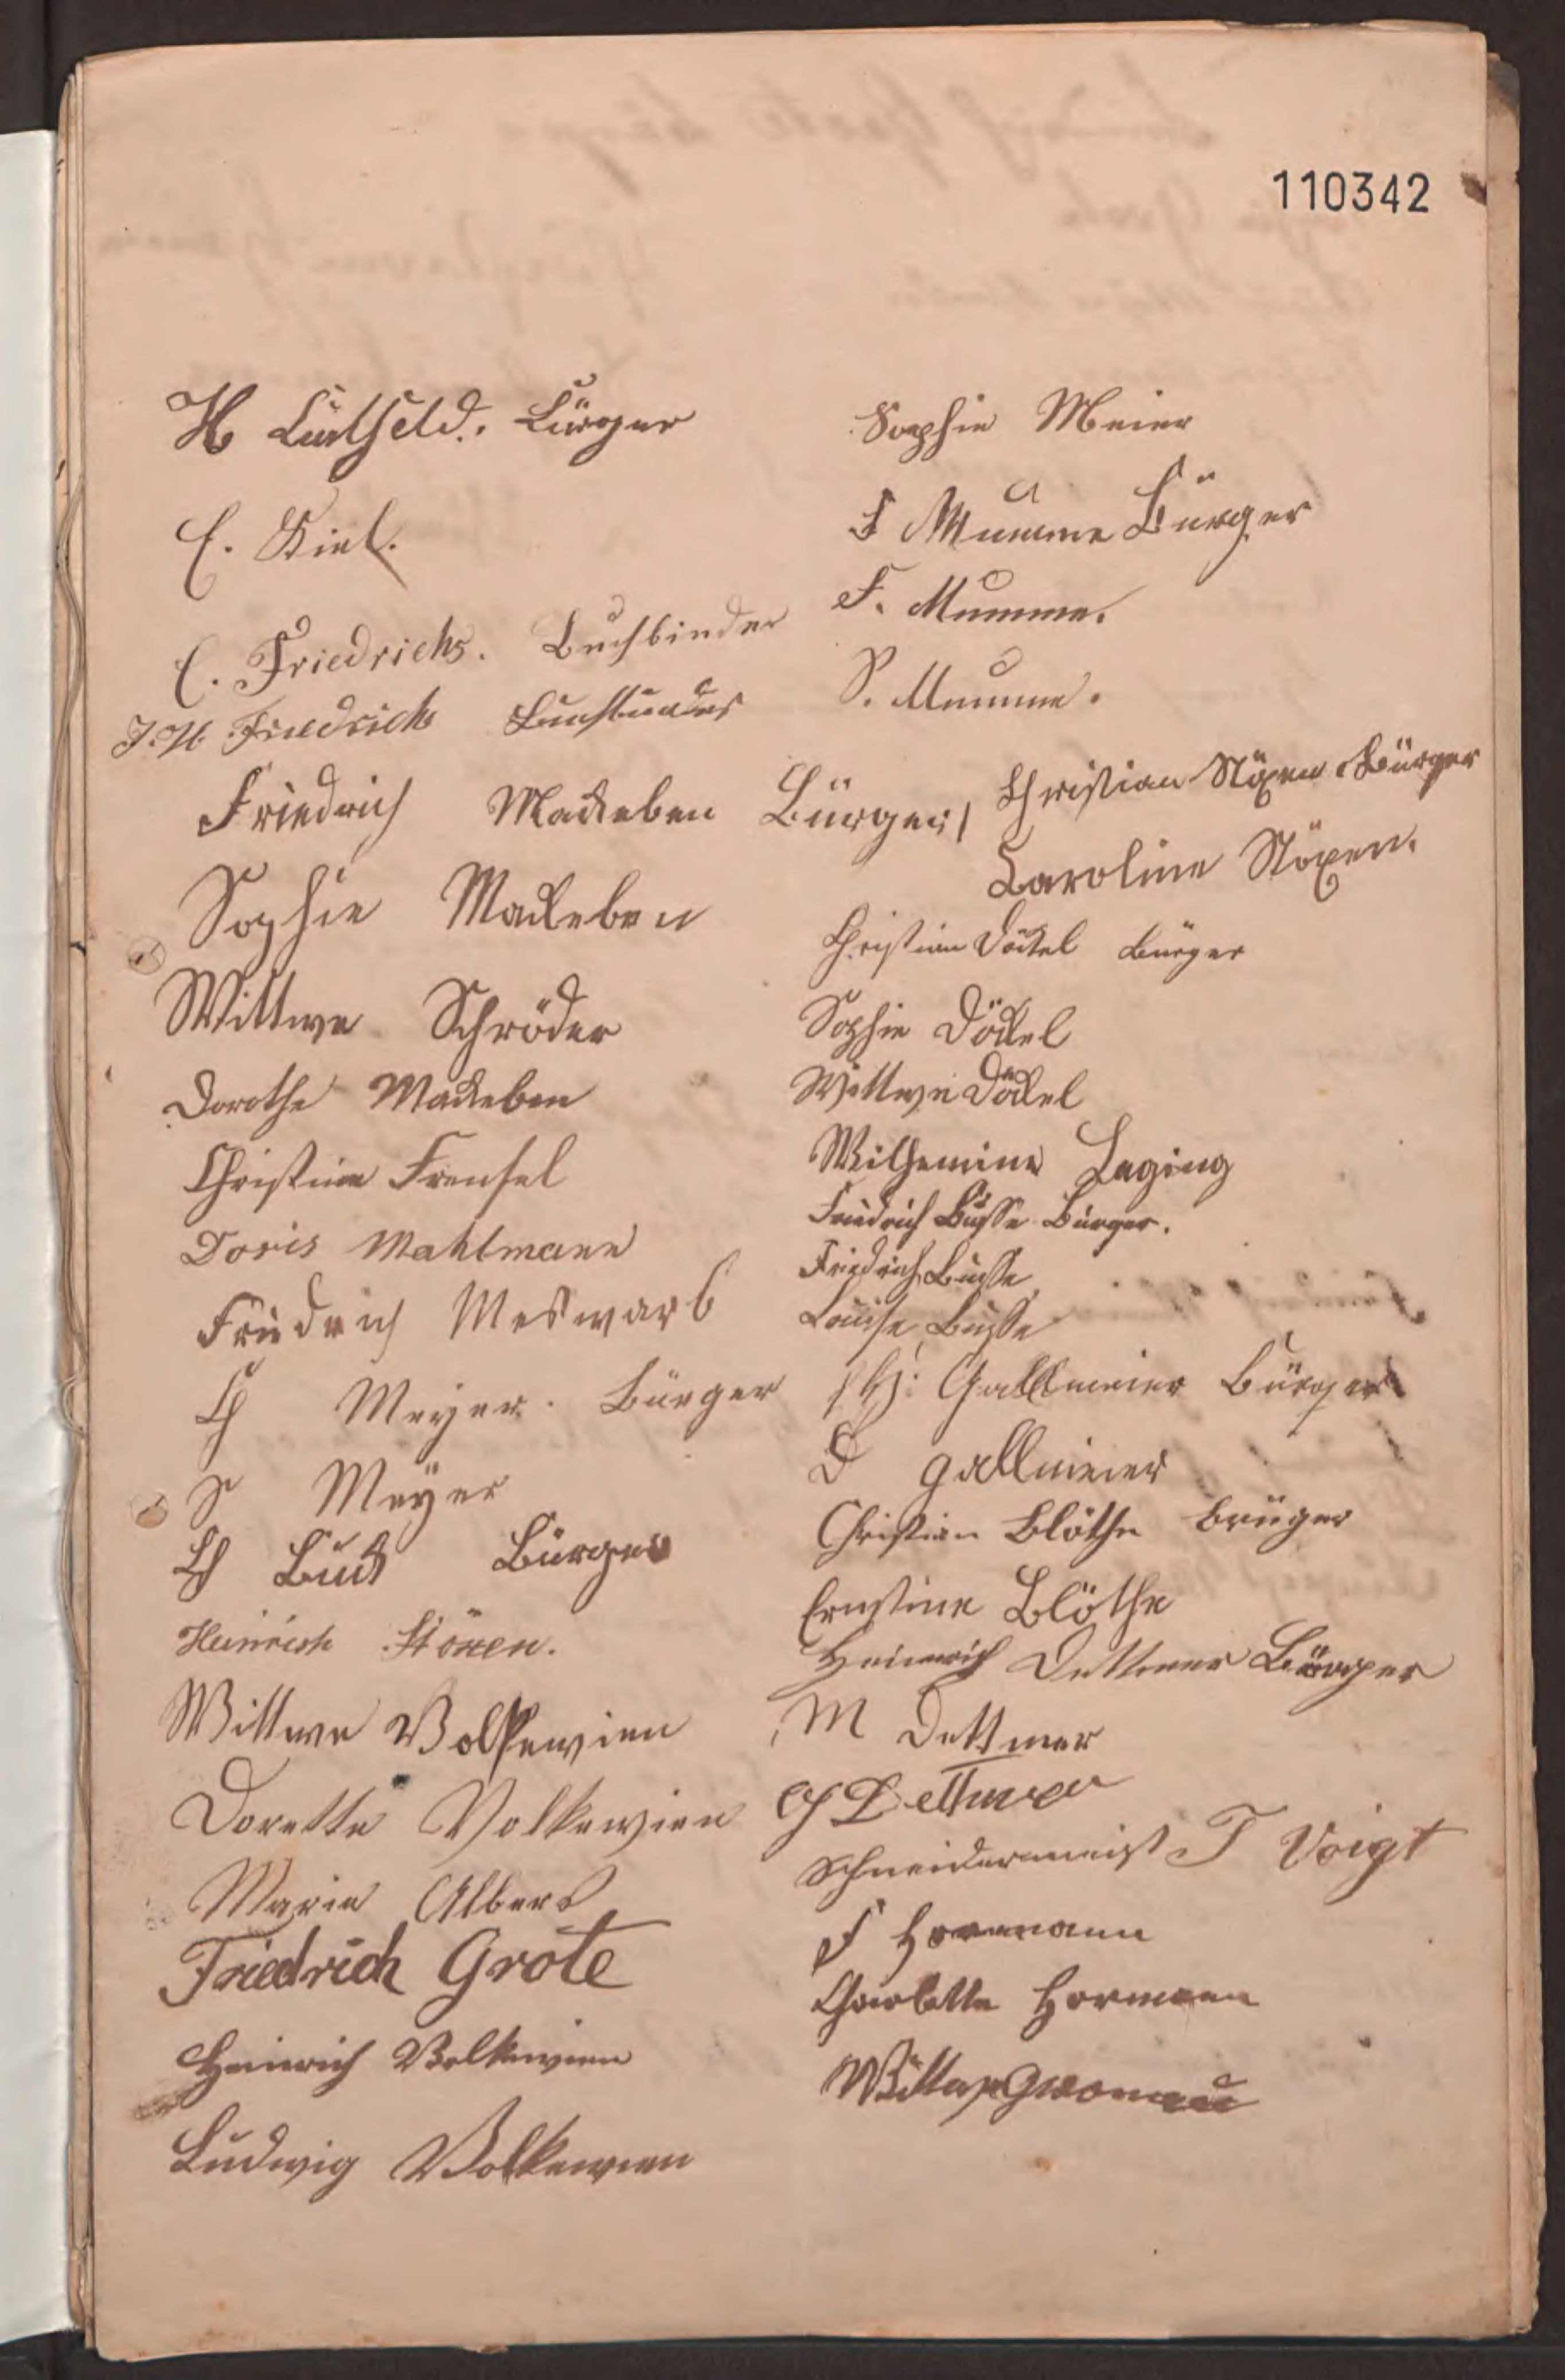 110342
H Lütheld. Bürger
C. Kiel.
C. Friedrichs. Buchbinder
J. H. Friedrichs Buchbinder
Friedrich Mackeben Bürger
Sophie Mackeben
Wittwe Schröder
Dorothe Mackeben
Christine Frensel
Doris Mahlmann
Friedrich Meswarb
Ch Meyer. Bürger
S Meÿer
Ch Buck Bürger
Heinrich Stöxen.
Wittwe Volkewien
Dorette Volkewien
Marie Albers
Friedrich Grote
Heinrich Volkewien
Ludwig Volkewien
Sophie Meier
F Mumme Bürger
F. Mumme.
S. Mumme.
Christian Stöxen Bürger
Caroline Stöxen.
Christian Döckel Bürger
Sophie Döckel
Wittwe Döckel
Wilhemine Laging
Friedrich Busse Bürger.
Friedrich Busse
Louise Busse
H: Gallmeier Bürger
D Gallmeier
Christian Blöthe Brüger
Ernstine Blöthe
Heinrich Dettmer Bürger
M Dettmer
Ch Dettmer
Schneidermeist T Voigt
F Hormann
Charlotte Hormann
Wittwe